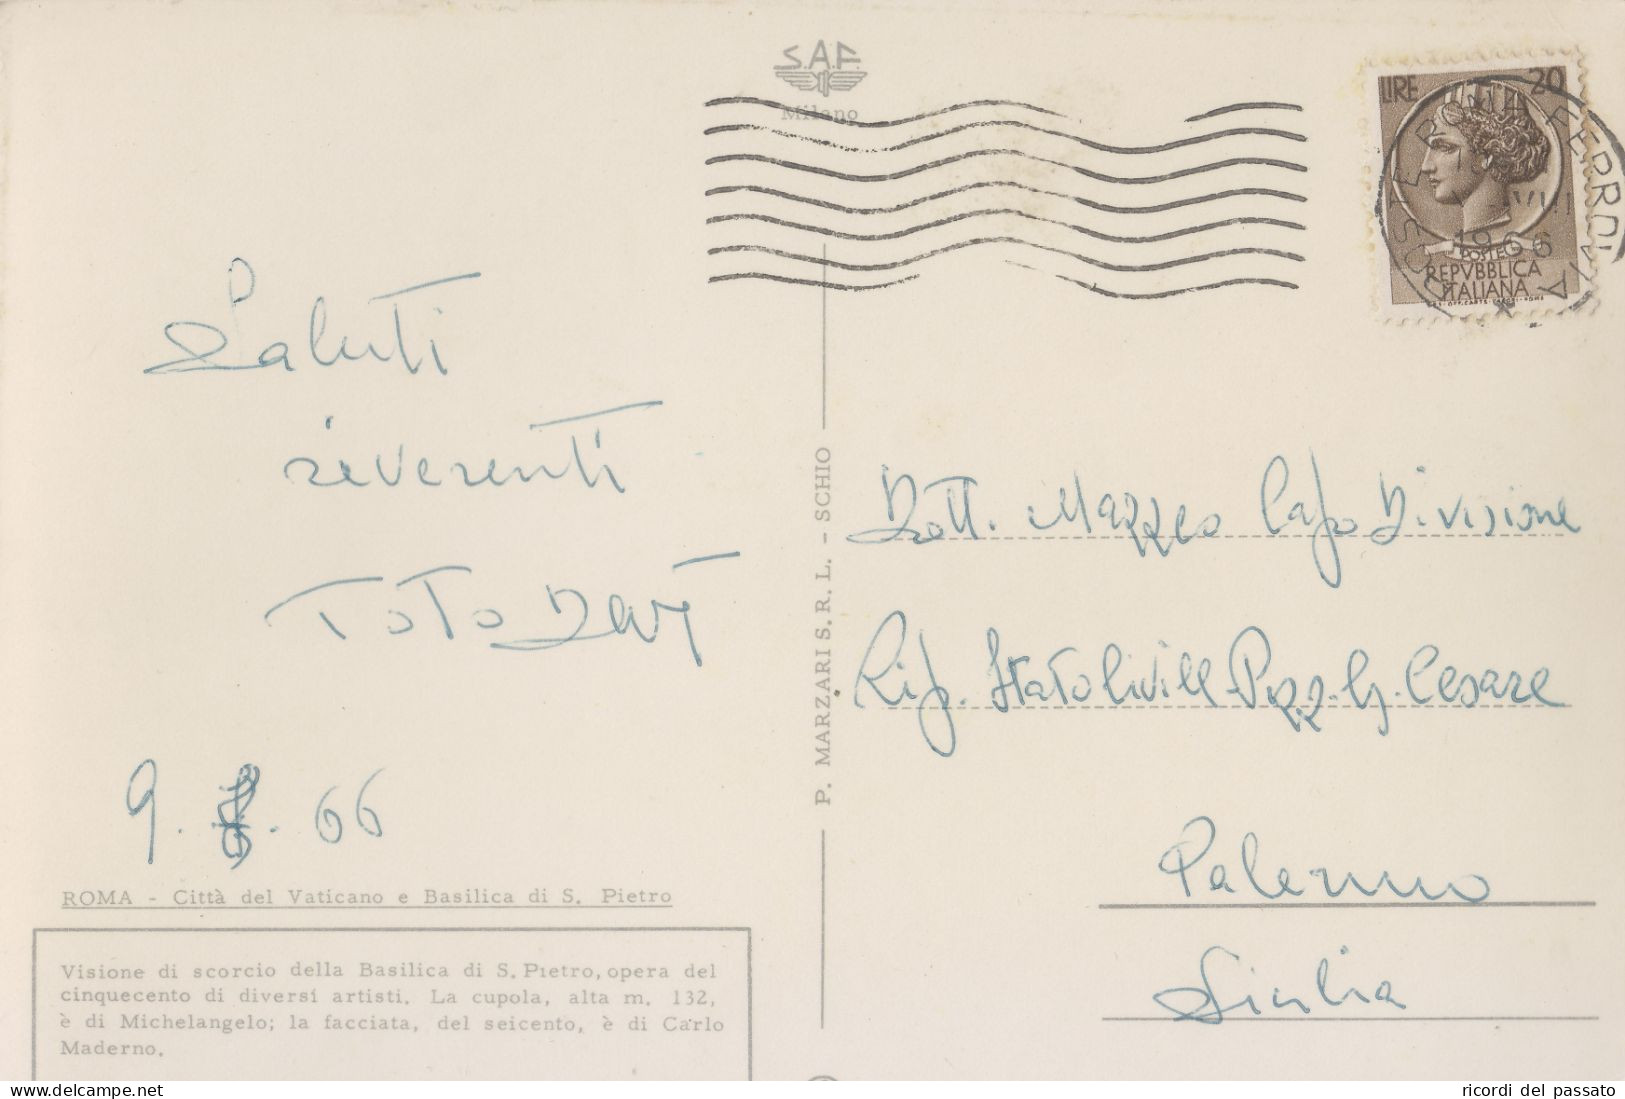 S.A.F.
Milano
LIRE 20
POSTE ROMA FERROVIA
1966
POSTE
REPVBBLICA
ITALIANA
Saluti
reverenti
Totò
9. 66
P. MARZARI S. R. L. - SCHIO
Dott. Mazzeo Capo Divisione
Rip. Stato Civile Pzz. G. Cesare
Palermo
Sicilia
ROMA - Città del Vaticano e Basilica di S. Pietro
Visione di scorcio della Basilica di S. Pietro, opera del
cinquecento di diversi artisti. La cupola, alta m. 132,
è di Michelangelo; la facciata, del seicento, è di Carlo
Maderno.
www.delcampe.net
ricordi del passato